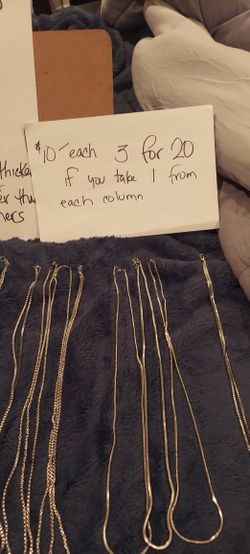 $10- each 3 for 20
if you take 1 from
each column
thicker
er than
hers